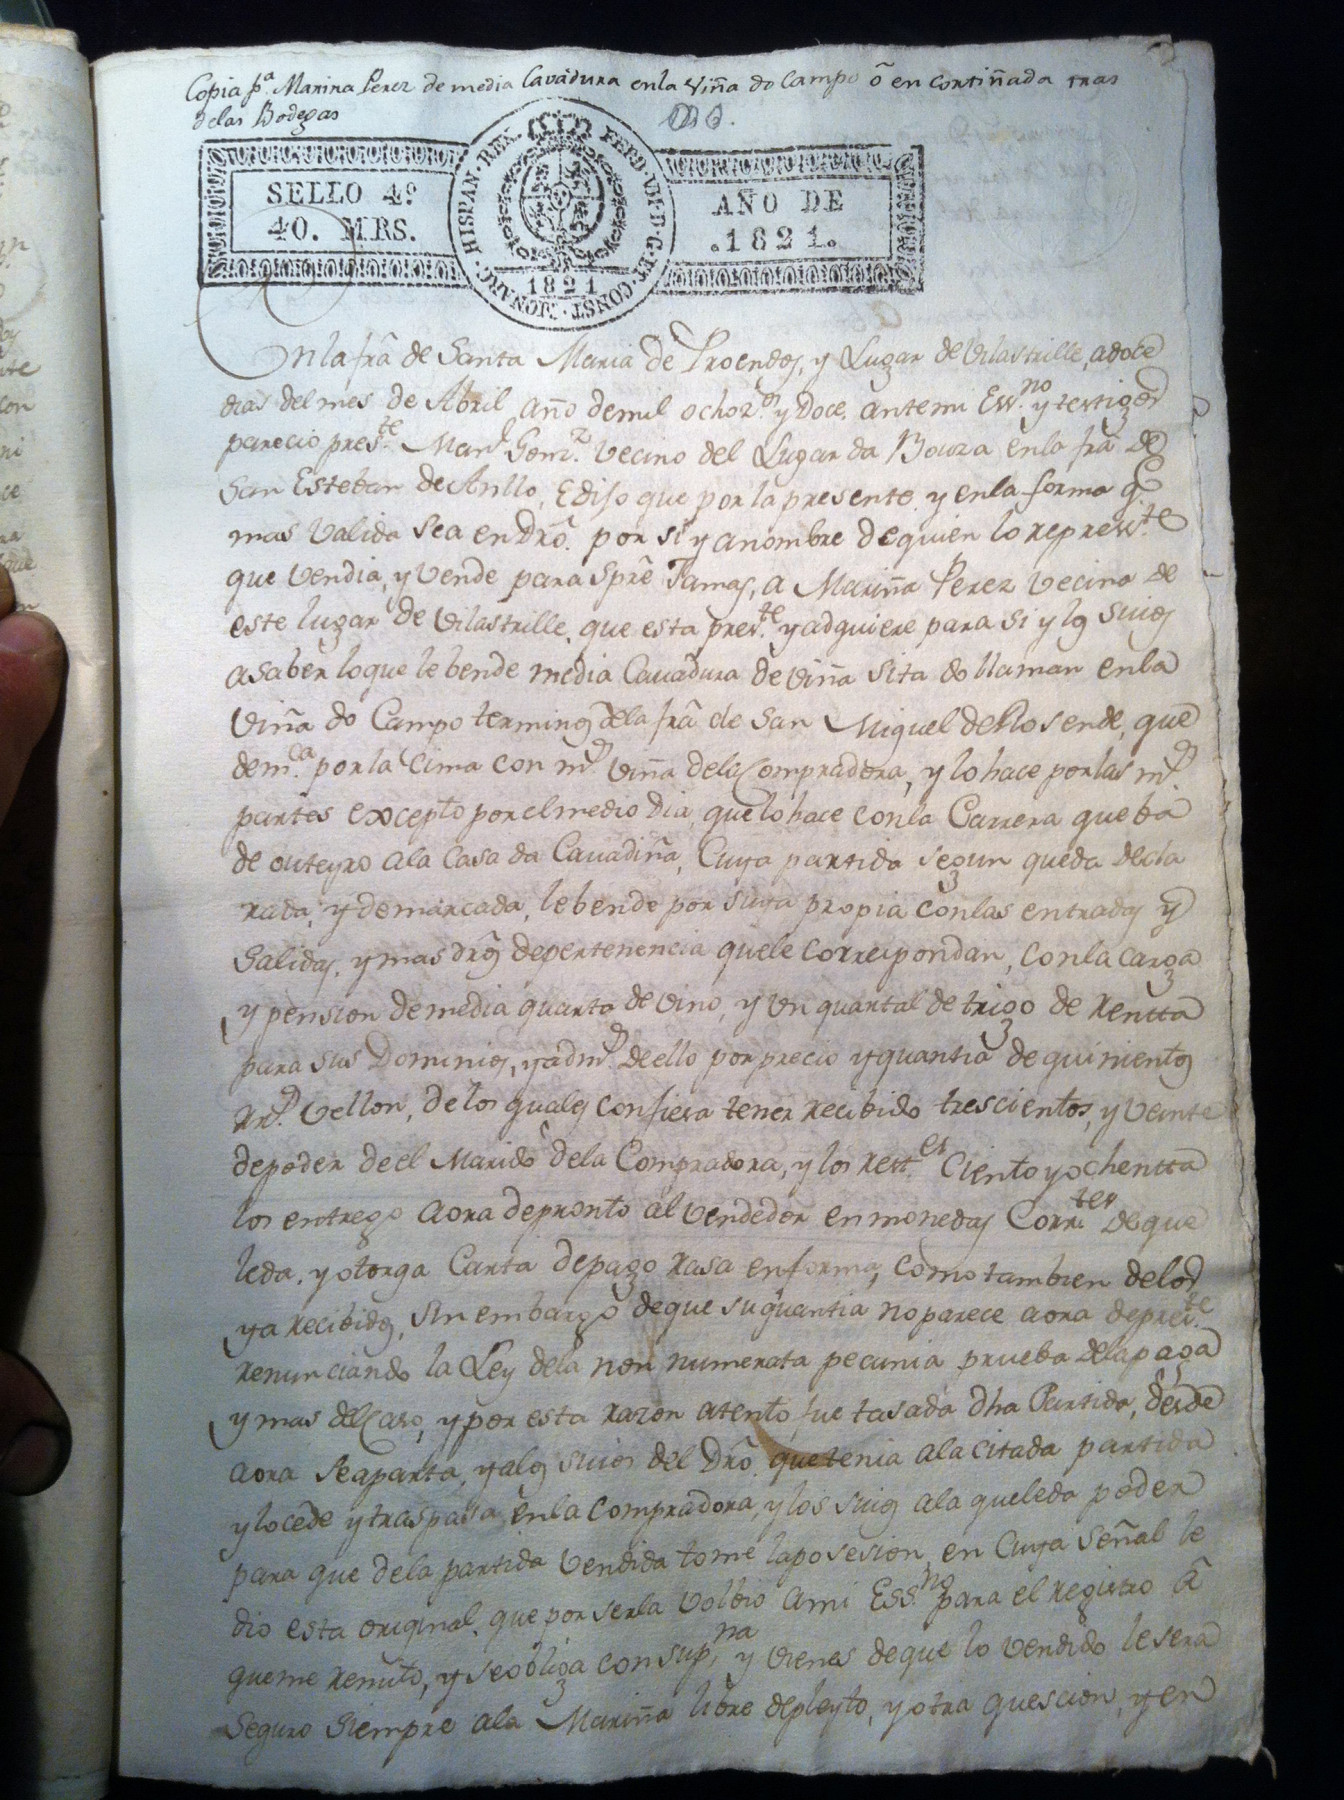 Copia pª. Marina Perez de media Cavadura enla viña do Campo ô en cortiñada tras
delas Bodegas
SELLO 4º
40. MRS.
HISPAN. REX. FERD. VII. D. G. ET. CONST. MONARC.
1821
AÑO DE
.1821.
Enla frâ de Santa Maria de Proendos, y Lugar de Vilastrille, adoce
dias del mes de Abril año demil ochoz.os y Doce. antemi Ess.no y testigos
parecio pres.te Man.l Gom.z vecino del Lugar da Bouza enla frâ de
San Esteban de Anllo, Edijo que por la presente y enla forma q.e
mas valida sea en Drô. por si y anombre dequien lo represe.te
que vendia, y vende para Sprê Jamas, a Mariña Perez vecina de
este lugar de Vilastrille, que esta pres.te y adquiere para si y los suios
asaber loque le bende media Cavadura de viña sita do llaman enla
viña do Campo terminos dela frâ de San Miguel de Rosende, que
dem.ca por la Cima con m.s viña dela Compradora, y lo hace por las m.s
partes excepto por el medio Dia, que lo hace conla Carrera que bà
de outeyro ala Casa da Cavadiña, Cuya partida segun queda decla
rada, y demarcada, le bende por suya propia conlas entradas y
Salidas, y mas drôs depertenencia quele correspondan, conla carga
y pension demedia quarta de vino, y un quartal de trigo de Rentta
para sus Dominios, y adm.s deello por precio y quantia de quinientos
Rr.s vellon, delos quales confiesa tener recibido trescientos, y veinte
depoder deel Marido dela Compradora, y los rest.es Ciento y ochentta
los entrego aora depronto al vendedor en monedas Corr.tes deque
leda, y otorga Carta depago rasa enforma, como tambien delos
ya recibidos, sin embargo deque su quantia noparece aora depres.te
renunciando la Ley dela non numerata pecunia prueba dela paga
y mas del Caso, y por esta razon atento fue tasada dha Partida, desde
aora seaparta, y alos suios del Drô. que tenia ala citada partida
y locede y traspasa enla compradora, y los suios ala queleda poder
para que dela partida vendida tome laposesion, en Cuya Señal le
dio esta original, que por serla volbio ami Ess.no para el Registro â
queme remito, y seobliga consup.na y vienes deque lo vendido lesera
Seguro Siempre ala Mariña libre depleyto, y otra quescion, y en